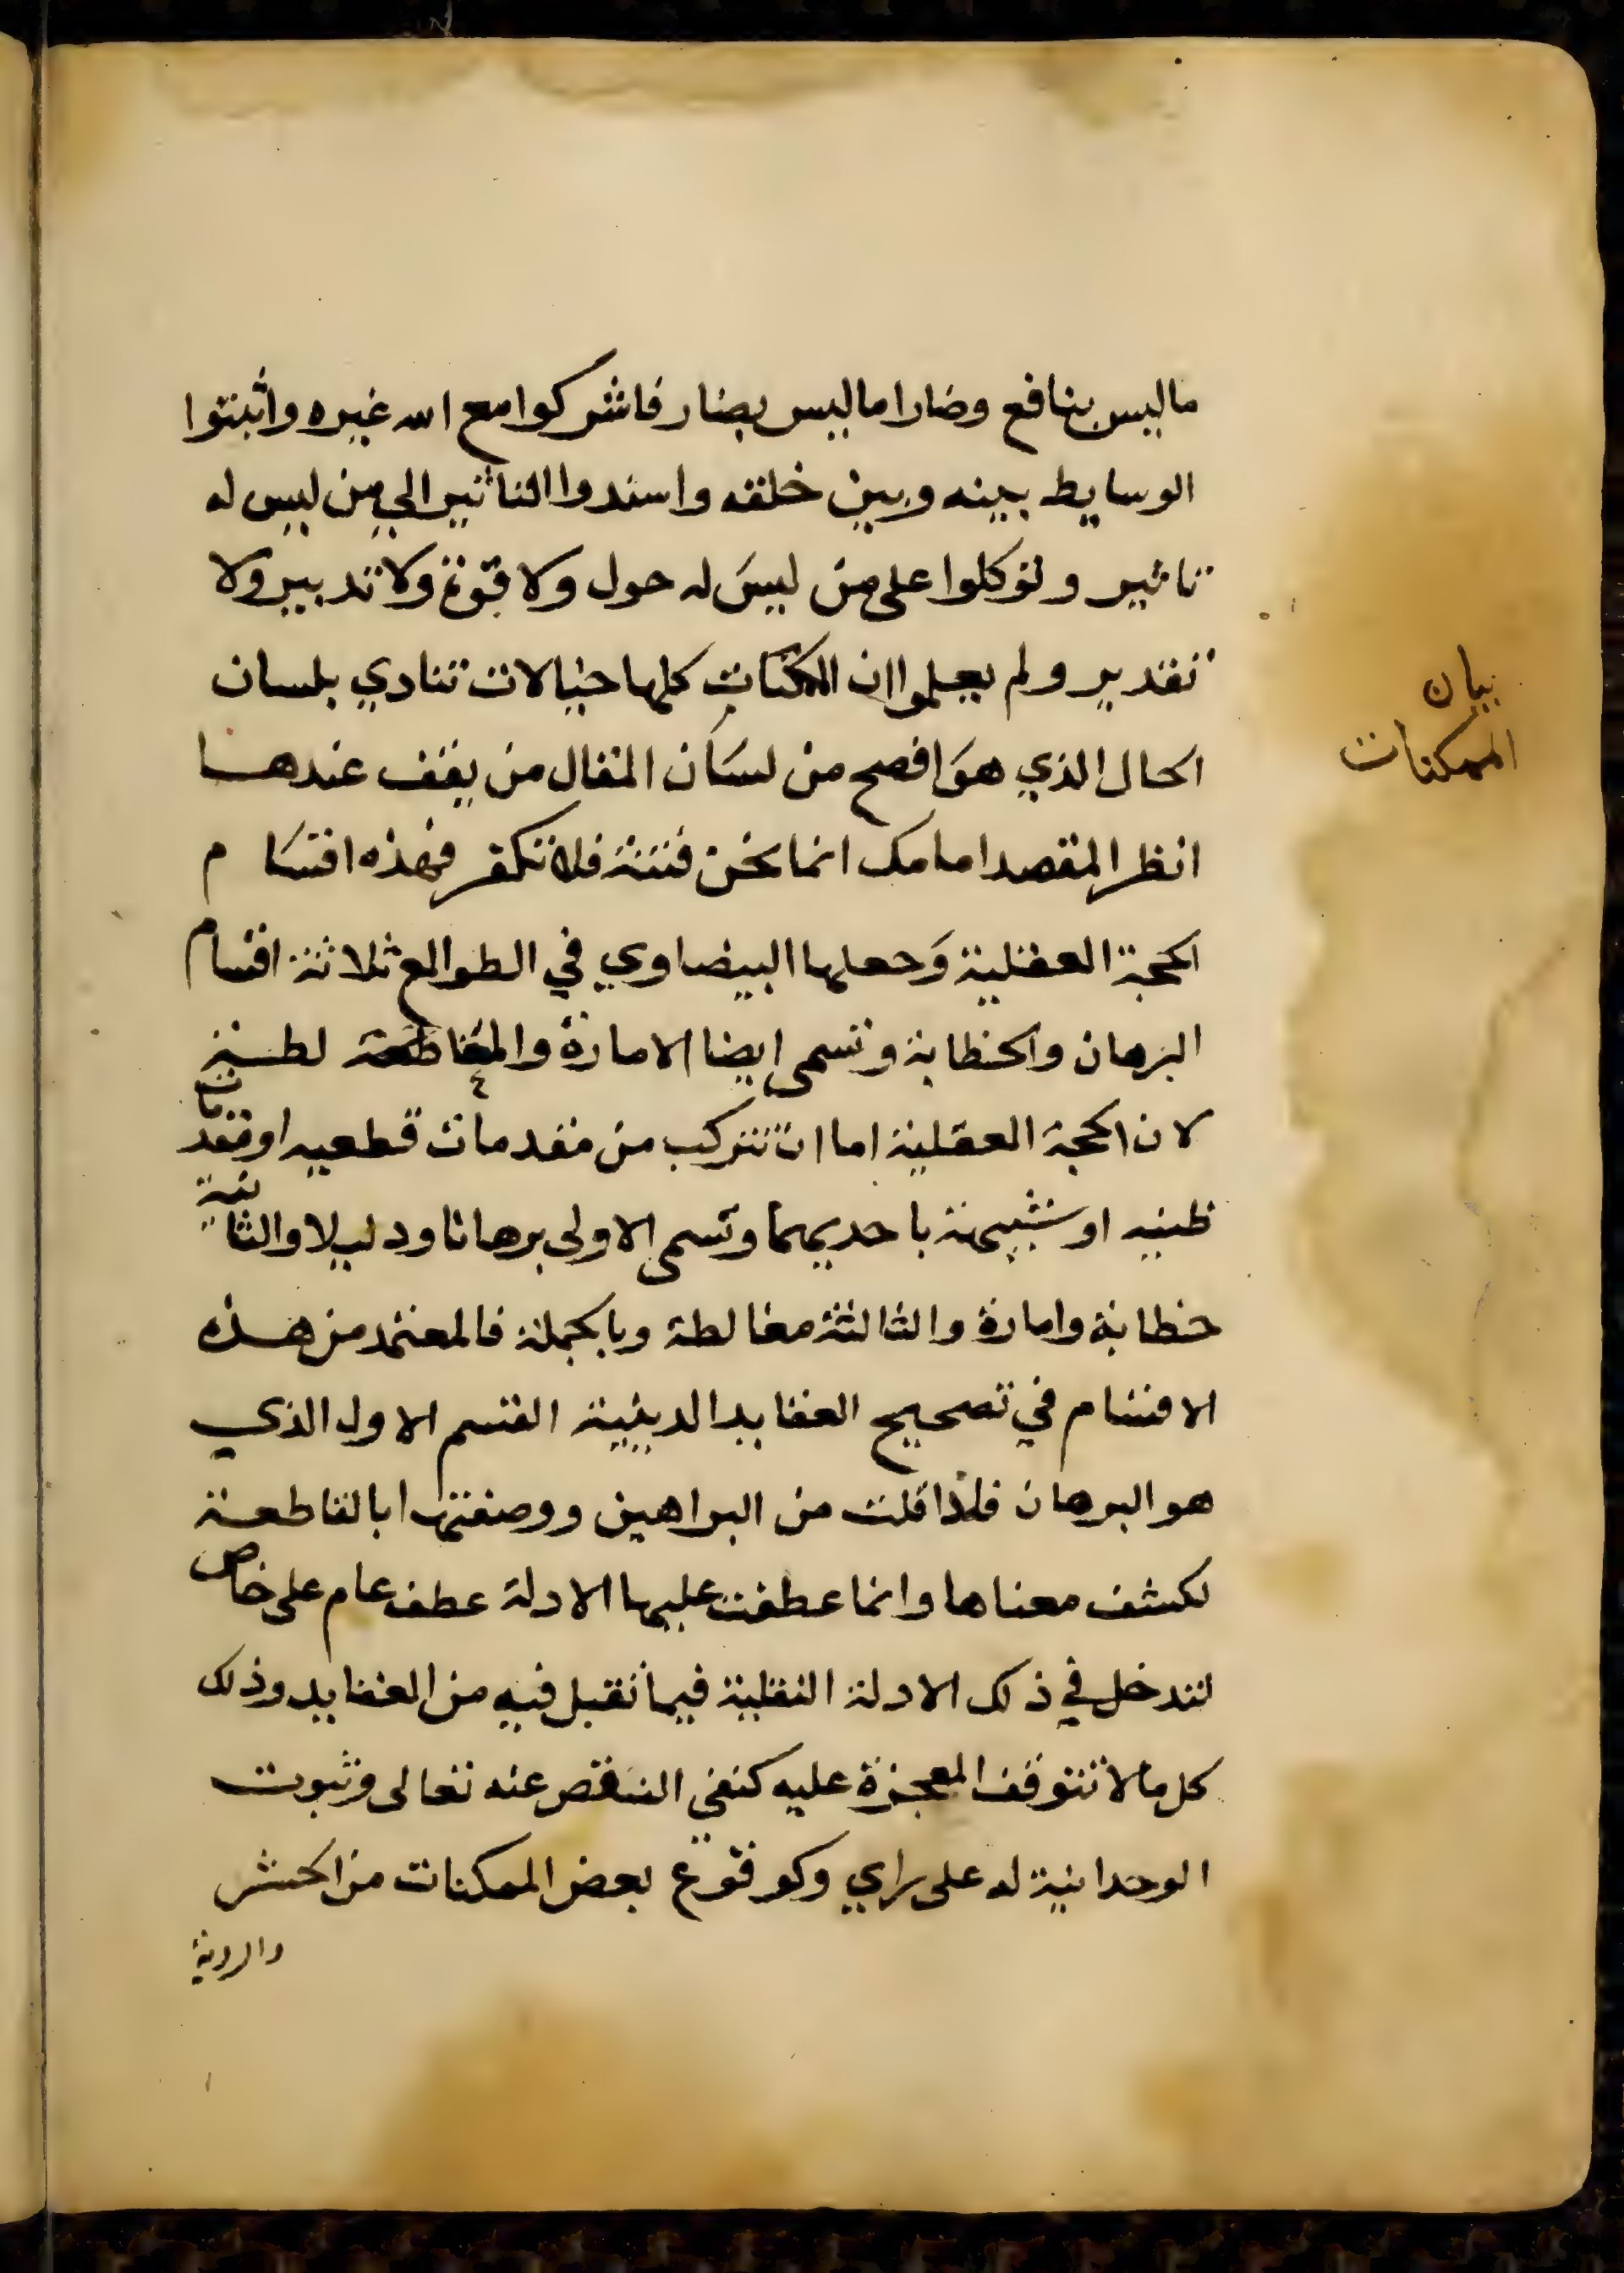 ما ليس بنافع وضارا ما ليس بضار فاشركوا مع الله غيره واثبتوا
الوسايط بينه وبين خلقه واسندوا التاثير الي من ليس له
تاثير وتوكلوا على من ليس له حول ولا قوة ولا تدبير ولا
تقدير ولم يعلموا ان الممكنات كلها خيالات تنادي بلسان
بيان
الممكنات
الحال الذي هو افصح من لسان المقال من يقف عندها
انظر المقصد امامك انما نحن فتنة فلا تكفر فهذه اقسام
الحجة العقلية وجعلها البيضاوي في الطوالع ثلاثة اقسام
البرهان والخطابة وتسمى ايضا الامارة والمغالطة
لان الحجة العقلية اما ان تتركب من مقدمات قطعيه او مقدمات
ظنيه او شبيهة باحديهما وتسمى الاولى برهانا ودليلا والثانية
خطابة وامارة والثالثة مغالطة وبالجملة فالمعتمد من هذه
الاقسام في تصحيح العقايد الدينية القسم الاول الذي
هو البرهان فلذا قلت من البراهين ووصفتها بالقاطعة
لكشف معناها وانما عطفت عليها الادلة عطف عام على خاص
لتدخل في ذلك الادلة النقلية فيما تقبل فيه من العقايد وذلك
كل ما لا تتوقف المعجزة عليه كنفي النقص عنه تعالى وثبوت
الوحدانية له على راي وكوقوع بعض الممكنات من الحشر
والروية